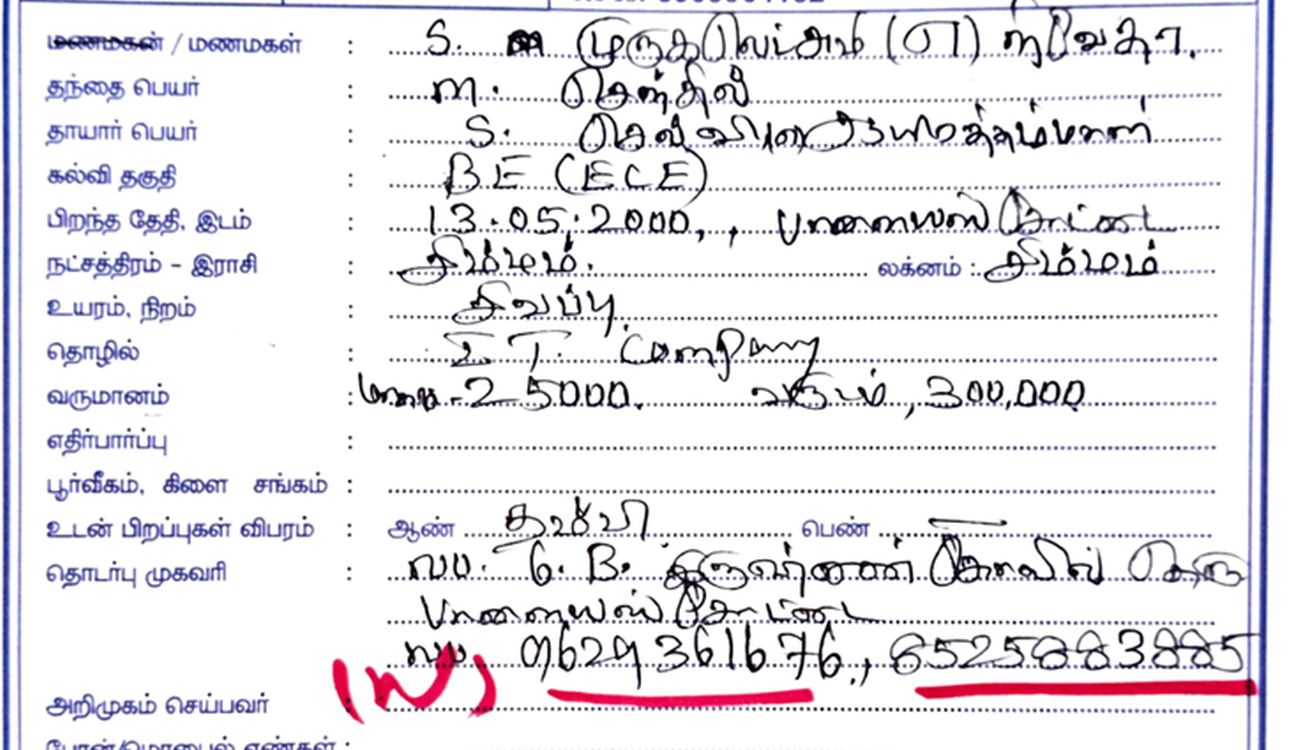 மணமகன் / மணமகள் : S. முருகலெட்சுமி (எ) நிவேதா.
தந்தை பெயர் : m. செந்தில்
தாயார் பெயர் : S.
கல்வி தகுதி : BE (ECE)
பிறந்த தேதி, இடம் : 13.05.2000, , பாளையங்கோட்டை
நட்சத்திரம் - இராசி : சிம்மம். லக்னம் : சிம்மம்
உயரம், நிறம் : சிவப்பு
தொழில் : I.T. Company
வருமானம் : மாத - 25000. வருடம், 300,000
எதிர்பார்ப்பு :
பூர்வீகம், கிளை சங்கம் :
உடன் பிறப்புகள் விபரம் : ஆண் தம்பி பெண் —
தொடர்பு முகவரி : 6.B. கோவில் தெரு
பாளையங்கோட்டை
9629361676., 8525883885
(W)
அறிமுகம் செய்பவர்
போன்/மொபைல் எண்கள் :